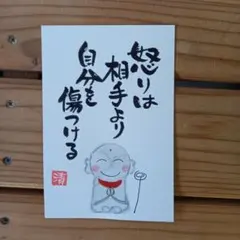 怒りは
相手より
自分を
傷つける
清